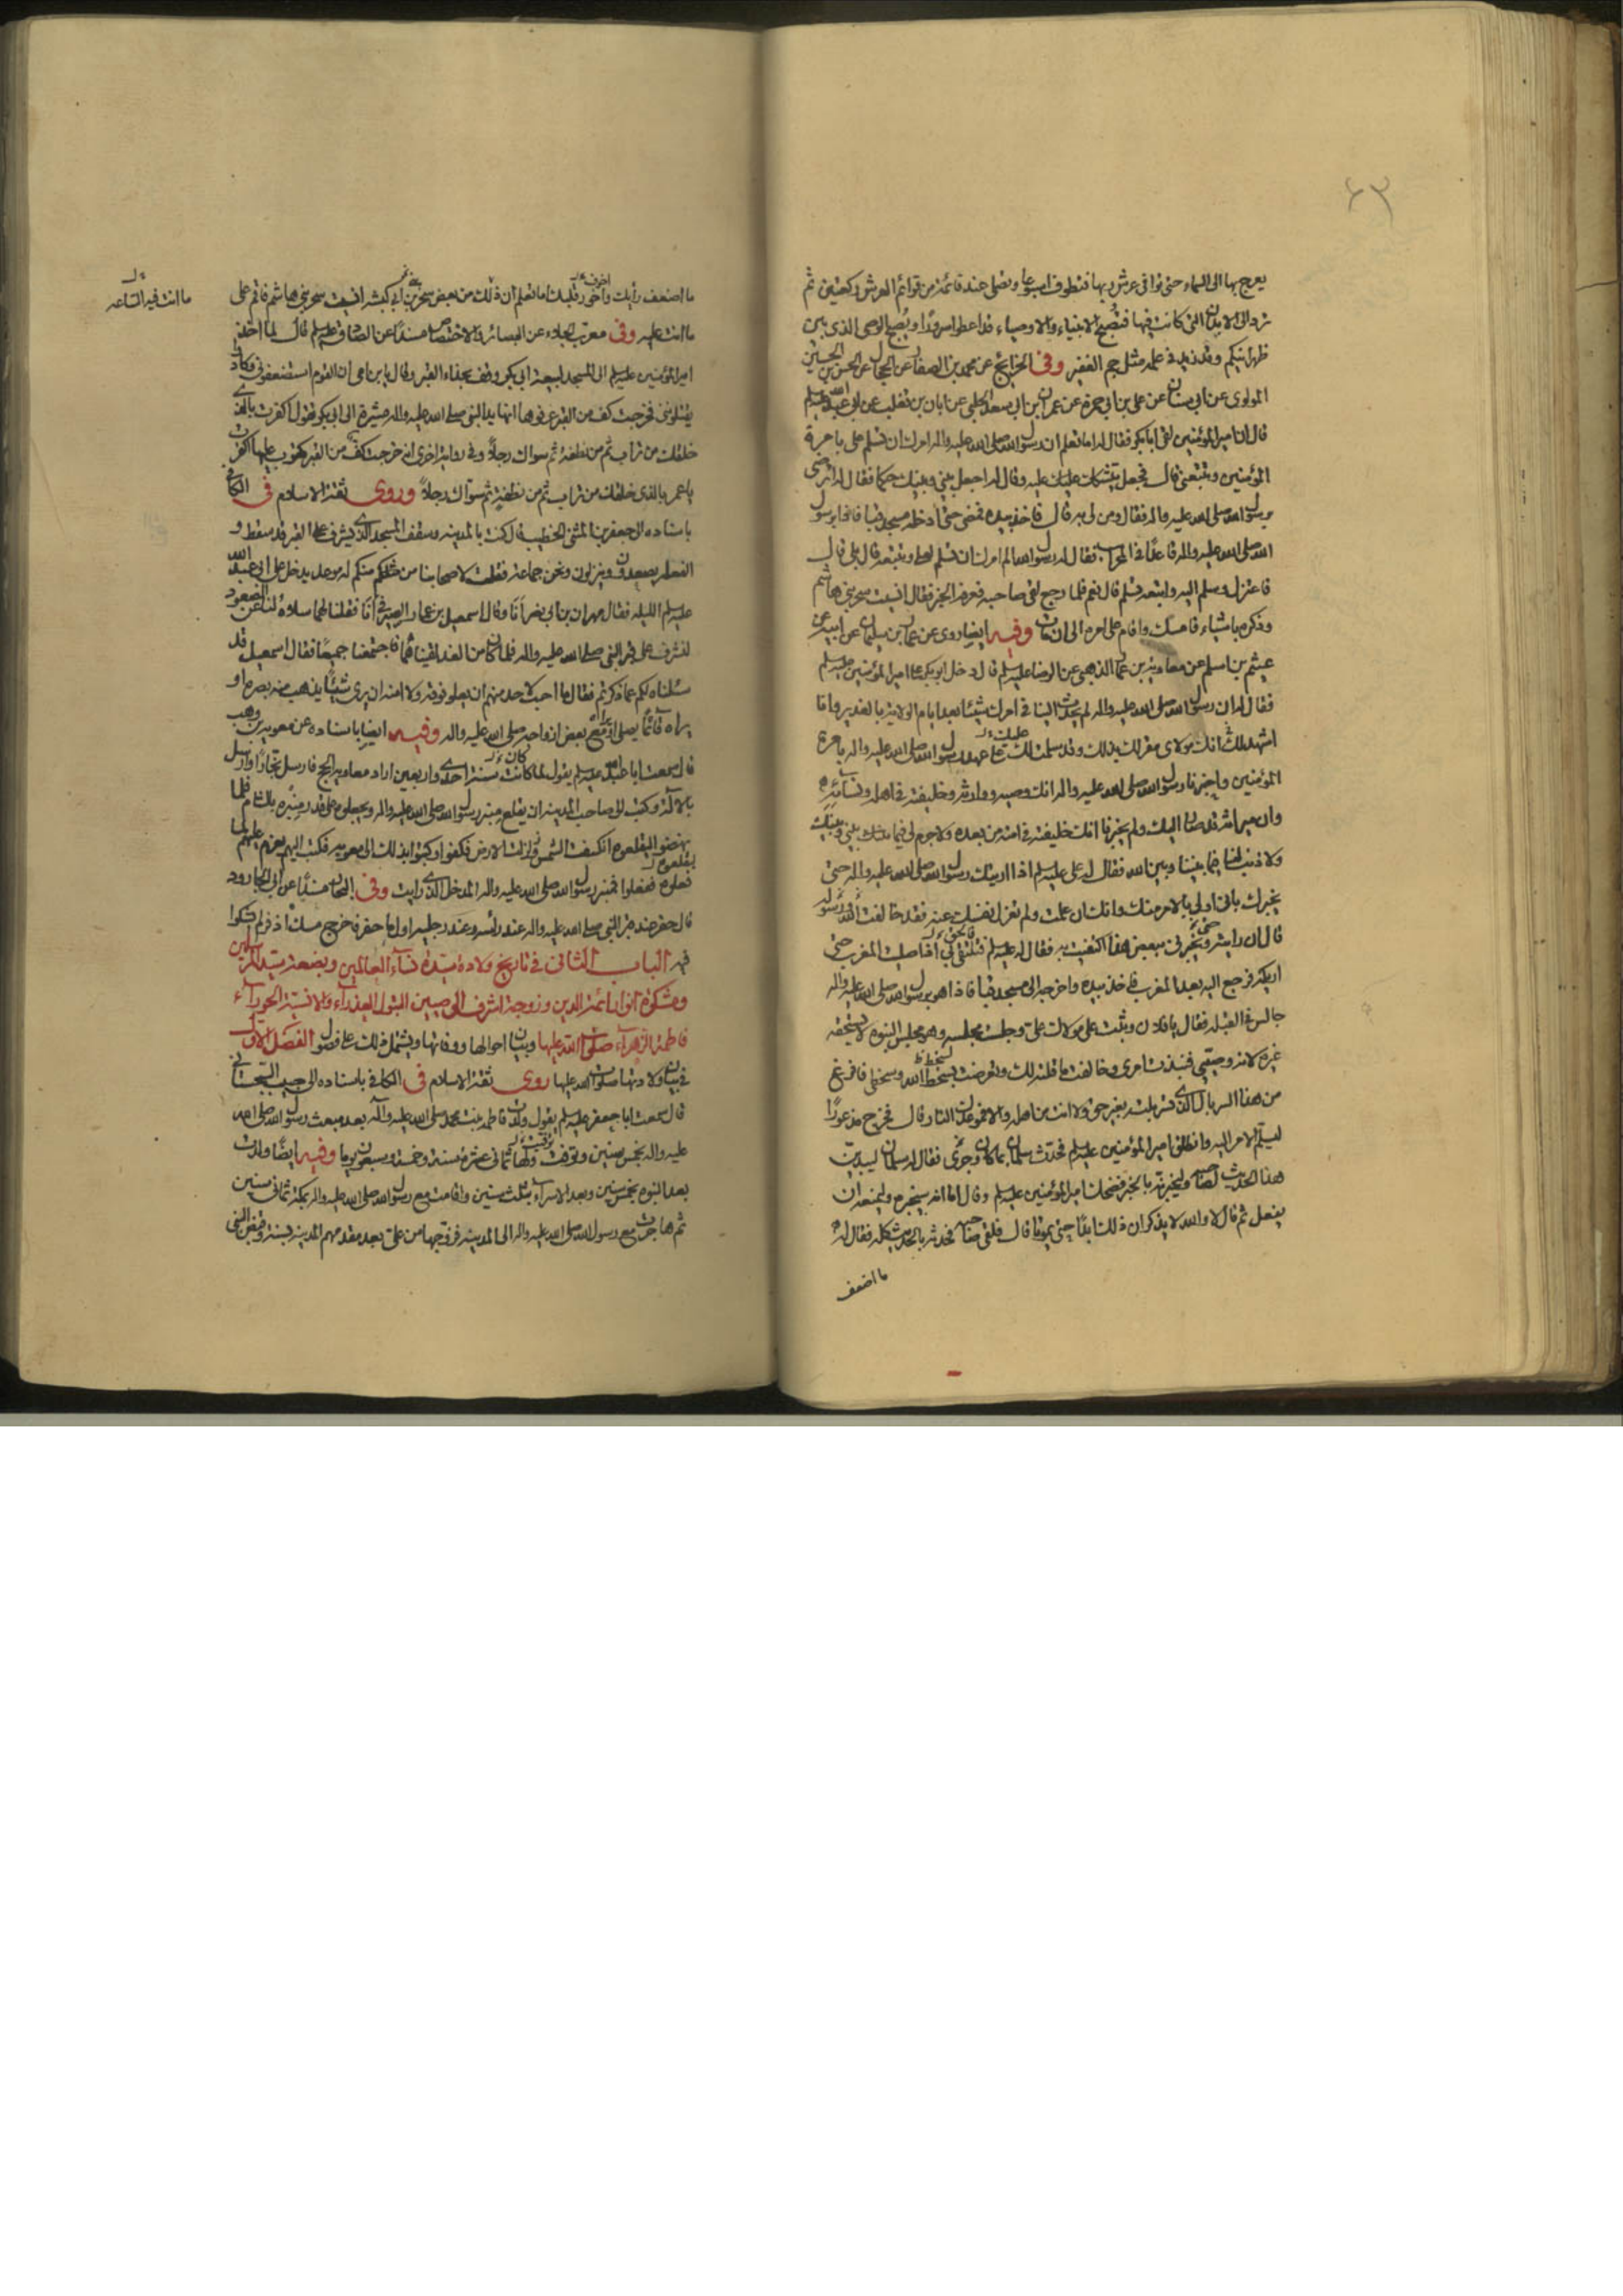 ٤٣
يعرج بها الى السماء حتى توافى عرش ربها فتطوف اسبوعا وتصلى عند قائمة من قوائم العرش ركعتين ثم
ترد الى الابدان التى كانت فيها فتصبح الانبياء والاوصياء قد اعطوا سرورا ويصبح الوصى الذى بين
ظهرانيكم وقد زيد فى علمه مثل جم الغفير وفى الخرايج عن محمد بن الصفار عن الحجال عن الحسن بن الحسين
اللولوى عن ابى سنان عن على بن ابى حمزة عن عمران بن ابى سعد الحلبى عن ابان بن تغلب عن ابى عبد الله عليه السلام
قال ان امير المؤمنين لقى ابا بكر فقال له اما تعلم ان رسول الله صلى الله عليه واله امرك ان تسلم على بامرة
المؤمنين وتتبعنى قال فجعل يتشكك عليه وقال له اجعل بينى وبينك حكما فقال له اترضى
برسول الله صلى الله عليه واله فقال ومن لى به قال فاخذ بيده فمضى حتى ادخله مسجد قبا فاذا برسول
الله صلى الله عليه واله قاعدا فى المحراب فقال له رسول الله الم امرك ان تسلم لعلى وتتبعه قال بلى قال
فاعتزل وسلم اليه واتبعه وتسلم قال نعم فلما رجع لقى صاحبه فعرفه الخبر فقال انسيت سحر بنى هاشم
وذكره باشياء فامسك واقام على امره الى ان مات وفيه ايضا روى عن عمار بن سليمان عن ابيه عن
عيثم بن اسلم عن معاوية بن عمار الدهنى عن الرضا عليه السلم قال دخل ابو بكر على امير المؤمنين عليه السلم
فقال له ان رسول الله صلى الله عليه واله لم يحدث الينا فى امرك شيئا بعد ايام الولاية بالغدير وانا
اشهد انك مولاى مقر لك بذلك وقد سلمت عليك على عهد رسول الله صلى الله عليه واله بامرة
المؤمنين واخبرنا رسول الله صلى الله عليه واله انك وصيه ووارثه وخليفته فى اهله ونسائه
وان ميراثه قد صار اليك ولم يخبرنا انك خليفته فى امته من بعده ولا جرم لى فيما بينى وبينك
ولا ذنب لنا فيما بيننا وبين الله فقال له على عليه السلم اذا اريتك رسول الله صلى الله عليه واله حتى
يخبرك بانى اولى بالامر منك وانك ان علمت ولم تعزل نفسك عنه فقد خالفت الله ورسوله
قال ان رايته حتى يخبرنى ببعض هذا اكتفيت به فقال له عليه السلم فتلقى لى اذا صليت المغرب حتى
اريكه فرجع اليه بعد المغرب فاخذ بيده واخرجه الى مسجد قبا فاذا هو برسول الله صلى الله عليه واله
جالس فى القبلة فقال يا فلان وثبت على مولاك على وجلست مجلسه وهو مجلس النبوة لا يستحقه
غيره لانه وصيى فنبذت امرى وخالفت ما قلته لك وتعرضت لسخط الله وسخطى فافرغ
من هذا السربال الذى تسربلت بغير حق ولا انت من اهله والا فموعدك النار وقال فخرج مذعورا
ليسلم الامر اليه وانطلق امير المؤمنين عليه السلم فحدث سلمان بما كان وجرى فقال له سلمان ليبدين
هذا الحديث لصاحبه وليخبرنه بالخبر فضحك امير المؤمنين عليه السلم وقال اما انه سيخبره وليمنعه ان
يفعل ثم قال لا والله لا يذكران ذلك ابدا حتى يموتا قال فلقى صاحبه فحدثه بالحديث كله فقال له
ما اضعف
ما اضعف رايك واخور قلبك اما تعلم ان ذلك من بعض سحر ابن ابى كبشة انسيت سحر بنى هاشم فاقم على
ما انت عليه وفى معرب العباد عن البصائر والاختصاص مسندا عن الصادق عليه السلم قال لما اخذ
ما انت فيه الساعه
امير المؤمنين عليه السلم الى المسجد لبيعة ابى بكر وقف بحذاء القبر وقال يا بن ام ان القوم استضعفونى وكادوا
يقتلوننى فخرجت كف من القبر عرفوها انها يد النبى صلى الله عليه واله مشيرة الى ابى بكر تقول اكفرت بالذى
خلقك من تراب ثم من نطفة ثم سواك رجلا وفى رواية اخرى انه خرجت كف من القبر مكتوب عليها اكفرت
يا عمر بالذى خلقك من تراب ثم من نطفة ثم سواك رجلا وروى ثقة الاسلام فى الكافى
باسناده الى جعفر بن المثنى الخطيب قال كنت بالمدينه وسقف المسجد الذى يشرف على القبر قد سقط و
الفعلة يصعدون وينزلون ونحن جماعة فقلت لاصحابنا من منكم له موعد يدخل على ابى عبد الله
عليه السلم الليله فقال مهران بن ابى نصر انا وقال اسمعيل بن عمار الصيرفى انا فقلنا لهما سلاه لنا عن الصعود
لنشرف على قبر النبى صلى الله عليه واله فلما كان من الغد لقيناهما فاجتمعنا جميعا فقال اسمعيل قد
سئلناه لكم عما ذكرتم فقال ما احب لاحد منهم ان يعلو فوقه ولا امنه ان يرى شيئا يذهب منه بصره او
يراه قائما يصلى او يراه مع بعض ازواجه صلى الله عليه واله وفيه ايضا باسناده عن معوية بن وهب
قال سمعت ابا عبد الله عليه السلم يقول لما كانت سنة احدى واربعين اراد معاويه الحج فارسل نجارا وارسل
بالالة وكتب الى صاحب المدينه ان يقلع منبر رسول الله صلى الله عليه واله ويجعلوه على قدر منبره بالشام فلما
نهضوا ليقلعوه انكسفت الشمس وزلزلت الارض فكفوا وكتبوا بذلك الى معويه فكتب اليهم يعزم عليهم لما
فعلوه ففعلوا فمنبر رسول الله صلى الله عليه واله المدخل الذى رايت وفى البحار مسندا عن ابى الجارود
قال حفر عند قبر النبى صلى الله عليه واله عند راسه وعند رجليه اول ما حفر فاخرج مسك اذفر لم يشكوا
فيه الباب الثانى فى تاريخ ولادة سيدة نساء العالمين وبضعة سيد المرسلين
ومشكوة انوار ائمة الدين وزوجة اشرف الوصيين البتول العذراء والانسية الحوراء
فاطمة الزهراء صلوات الله عليها وبيان احوالها ووفاتها ويشتمل ذلك على فصول الفصل الاول
فى بيان ولادتها صلوات الله عليها روى ثقة الاسلام فى الكافى باسناده الى حبيب السجستانى
قال سمعت ابا جعفر عليه السلم يقول ولدت فاطمه بنت محمد صلى الله عليه واله بعد مبعث رسول الله صلى الله
عليه واله بخمس سنين وتوفيت ولها ثمانى عشرة سنة وخمسة وسبعون يوما وفيه ايضا ولدت
بعد النبوة بخمس سنين وبعد الاسراء بثلث سنين واقامت مع رسول الله صلى الله عليه واله بمكة ثمانى سنين
ثم هاجرت مع رسول الله صلى الله عليه واله الى المدينه فزوجها من على بعد مقدمهم المدينه بسنة وقبض النبى